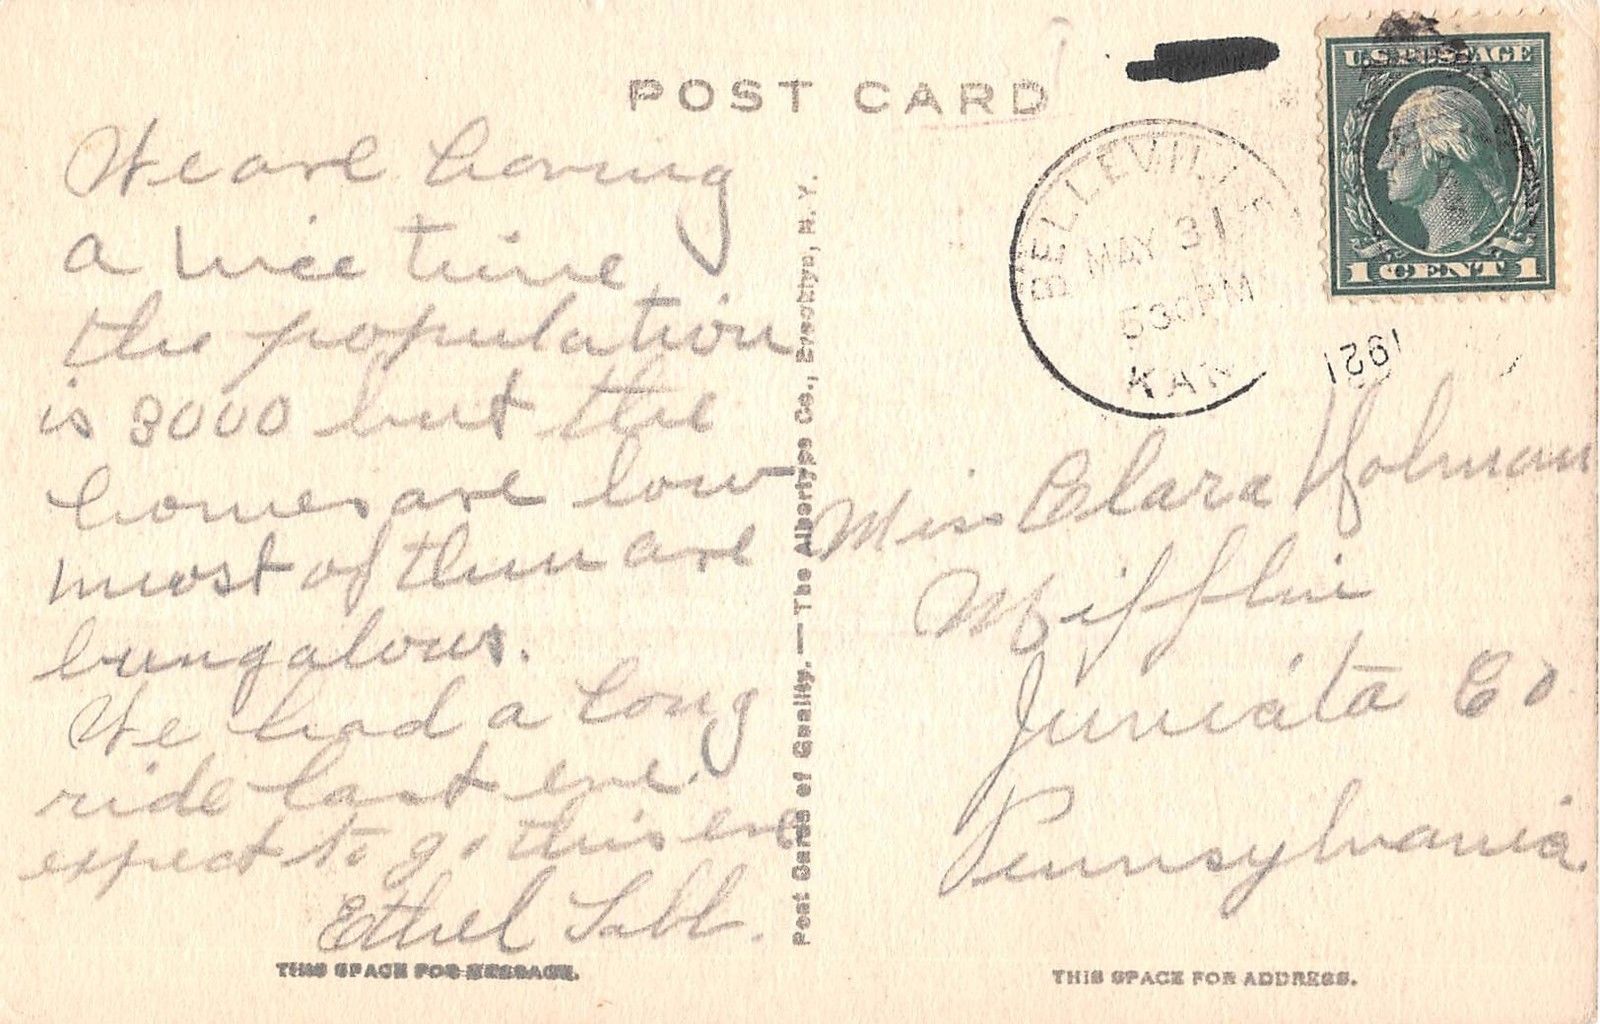 POST CARD
We are having
a nice time
the population
is 3000 but the
homes are low
most of them are
bungalows.
We had a long
ride last eve.
expect to go this eve
Ethel
THIS SPACE FOR MESSAGE.
Post Cards of Quality. — The Albertype Co., Brooklyn, N. Y.
BELLEVILLE
MAY 31
530PM
KAN
1921
U.S. POSTAGE
1 CENT 1
Miss Clara Holman
Mifflin
Juniata Co
Pennsylvania
THIS SPACE FOR ADDRESS.